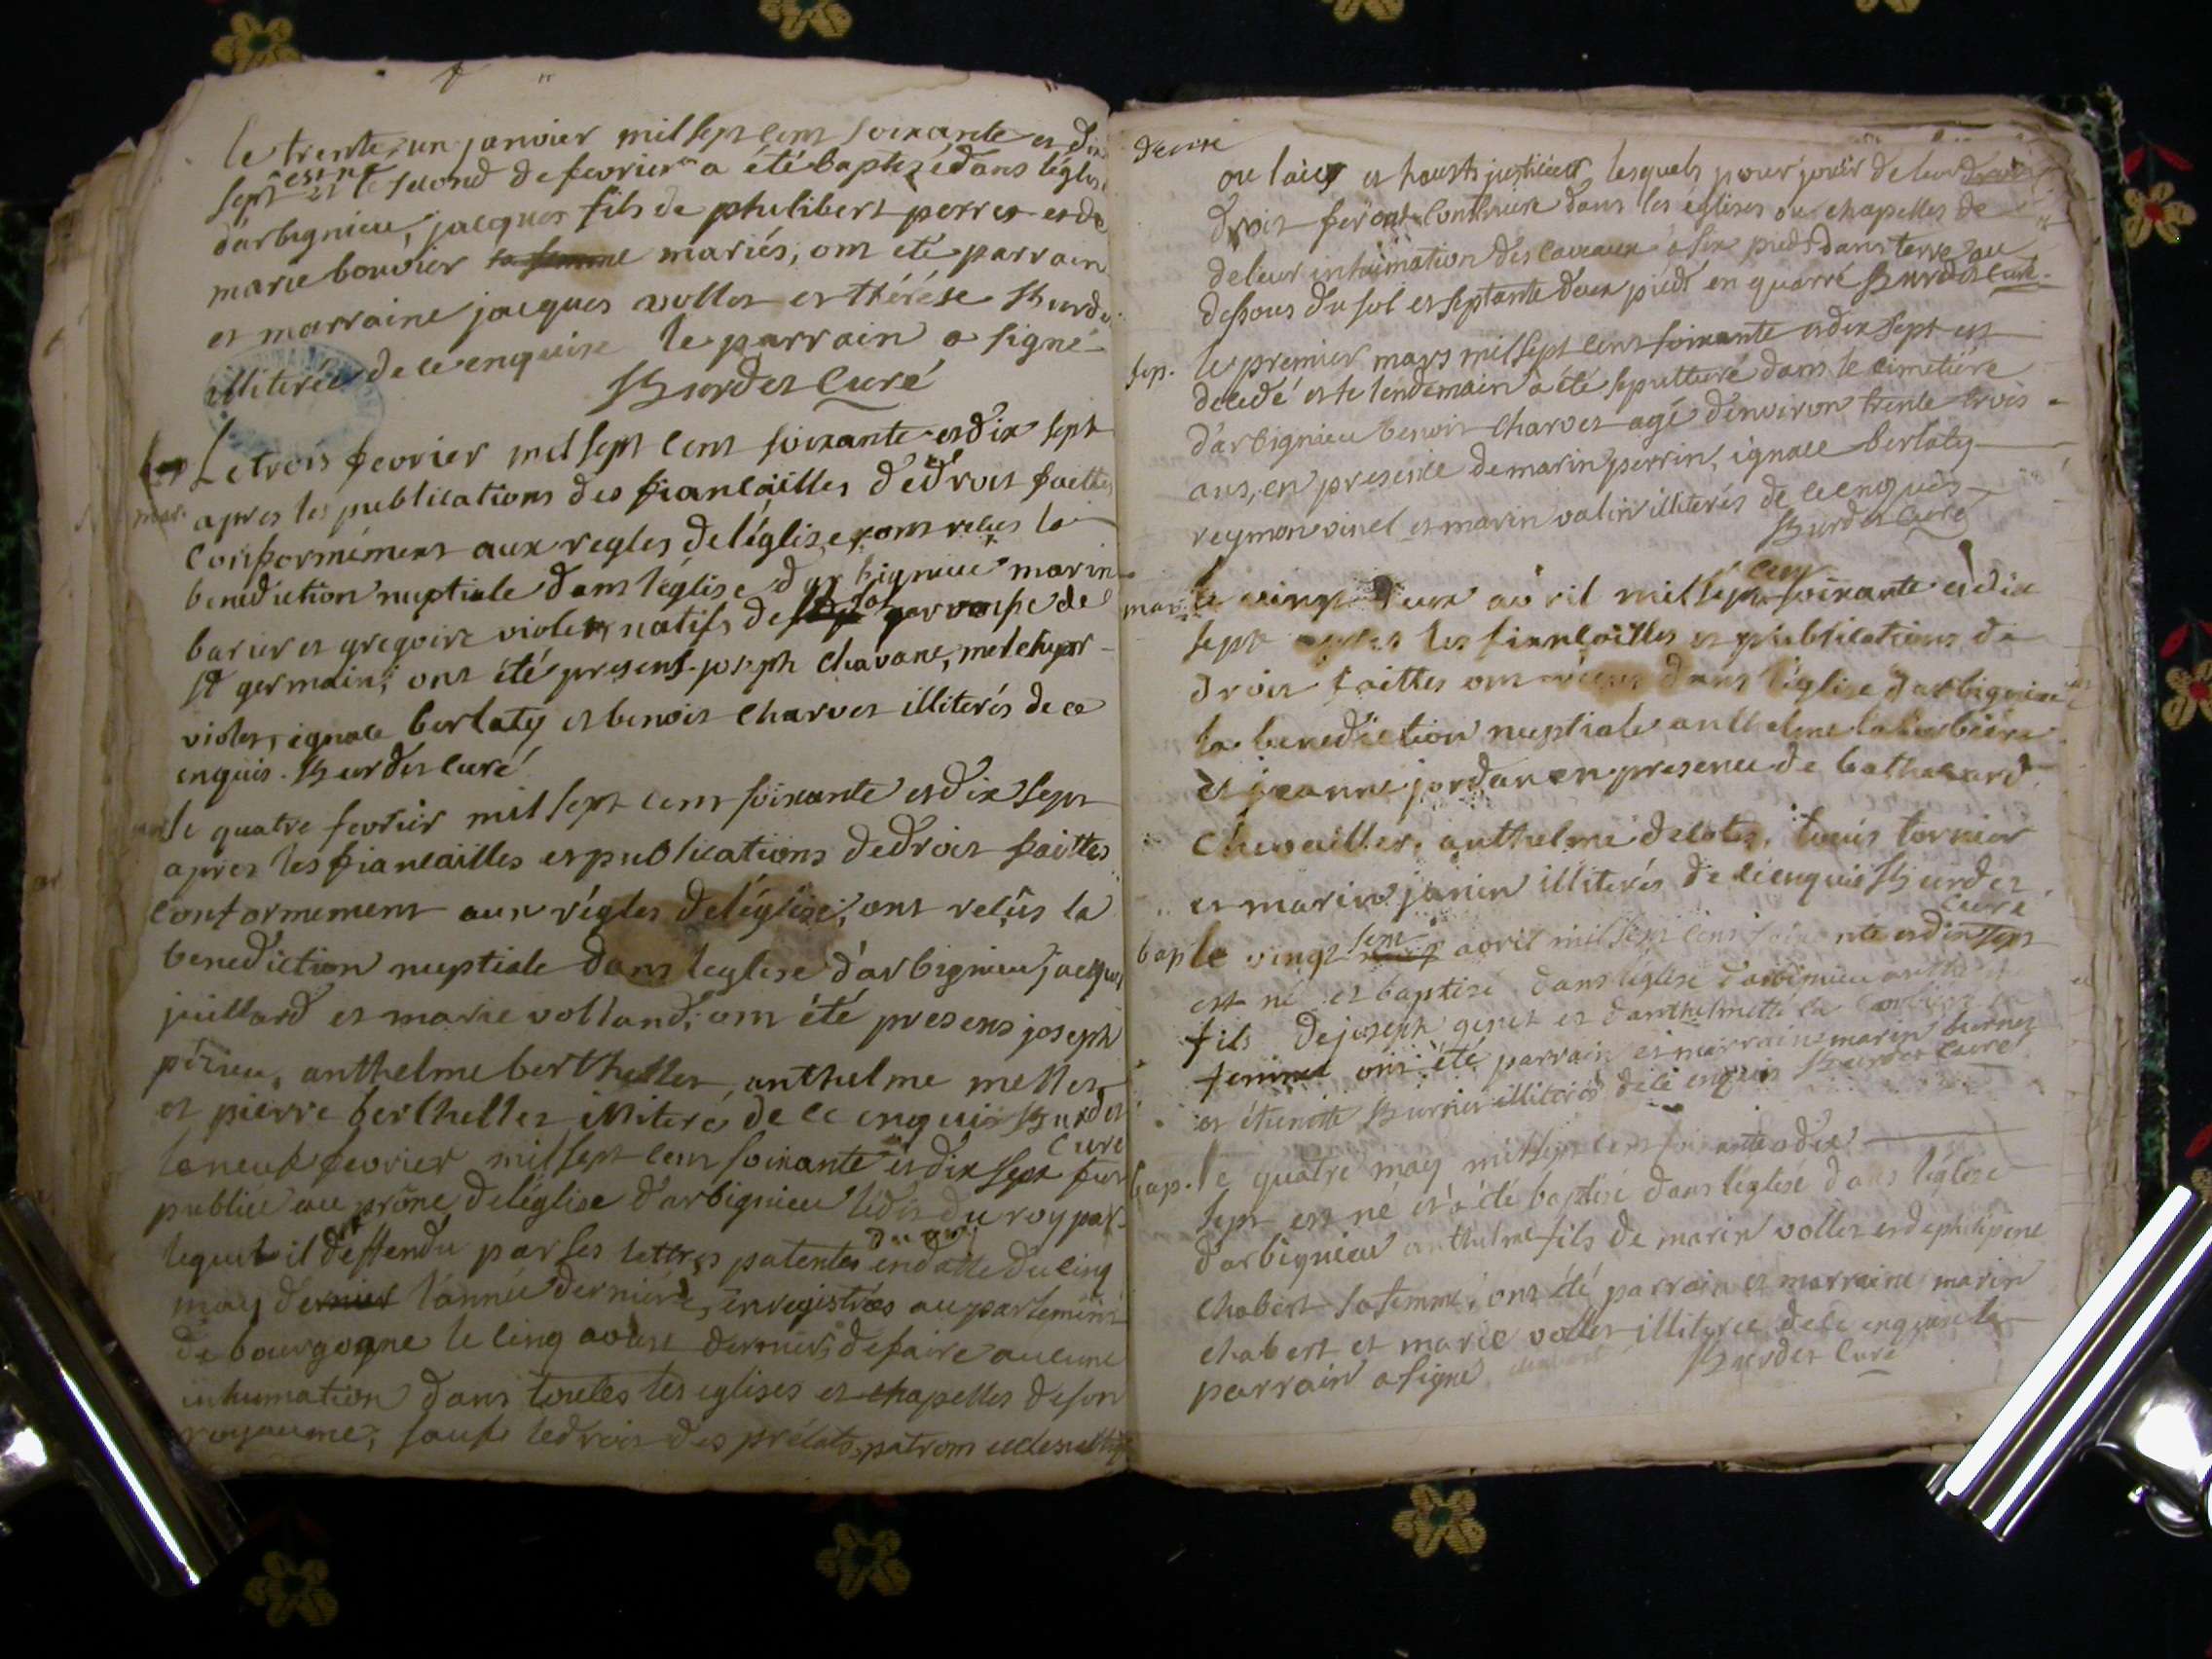 le trente, un janvier mil sept cent soixante et dix
sept est né et le second de fevrier a été baptizé dans l'église
d'arbignieu, jacques fils de philibert perret et de
marie bouvier sa femme mariés, ont été parrain
et marraine jacques vollet et thérése Burdet
illiterée de ce enquise le parrain a signé
Burdet Curé
Le trois fevrier mil sept cent soixante et dix sept
mar. apres les publications des fiancailles de droit faittes
conformément aux regles de l'églize, ont recus la
benediction nuptiale dans l'église d'arbignieu marin
barier et gregoire violet, natifs de la parroisse de
st germain; ont été presens joseph chavane, melchyor
violet, ignace berlaty et benoit charvet illiterés de ce
enquis. Burdet curé
mar. le quatre fevrier mil sept cent soixante et dix sept
apres les fiancailles et publications de droit faittes
conformement aux régles de l'église, ont relûs la
benediction nuptiale dans leglise d'arbignieu jacques
juillard et marie volland; ont été presens joseph
pirieu, anthelme berthellet, anthelme mellet
et pierre berthellet illiteré de ce enquis Burdet
Curé
le neuf fevrier mil sept cent soixante et dix sept fut
publiée au prône de l'église d'arbignieu l'édit du roy par
lequel il est deffendu par ses lettres patentes en datte du cinq
du mois
may dernier l'année derniére, enregistrées au parlement
de bourgogne le cinq aoust dernier, de faire aucune
inhumation dans toutes les eglises et chapelles de son
royaume; sauf le droit des prélats, patrom ecclesiastiq
ou laics et hauts justiciers lesquels pour jouïr de leur droit
droit feront construire dans les églises ou chapelles de
de leur inhumation des caveaux a six pieds dans terre au
dessous du sol et septante deux pieds en quarré Burdet curé.
sep. le premier mars mil sept cent soixante et dix sept est
decedé et le lendemain a été sepulturé dans le cimetiére
d'arbignieu benoit charvet agé d'environ trente trois
ans, en presence de marin perrin, ignace berlaty
reymon vinel et marin valin illiterés de ce enquis
Burdet Curé
cent
mar. le vingt deux avril mil sept soixante et dix
sept apres les fiancailles et publications de
droit faittes ont dans l'église d'arbignieu
la benediction nuptiale anthelme la
et jeanne jordan en presence de balthazard
chevaillier, anthelme delotz, louis tornier
et marin janin illiterés de ce enquis Burdet
curé
bap le vingt sept avril mil sept cent soixante et dix sept
est né et baptizé dans l'église d'arbignieu
fils de joseph genet et d'anthelmette la sa
femme ont été parrain et marraine marin burnet
et étienette Burnier illiterés de ce enquis Burdet Curé
bap. le quatre may mil sept cent soixante et dix
sept est né et a été baptizé dans l'église dans l'église
d'arbignieu anthelme fils de marin vollet et de philipene
chabert sa femme, ont été parrain et marraine marin
chabert et marie vollet illiterée de ce enquise le
parrain a signé chabert Burdet Curé